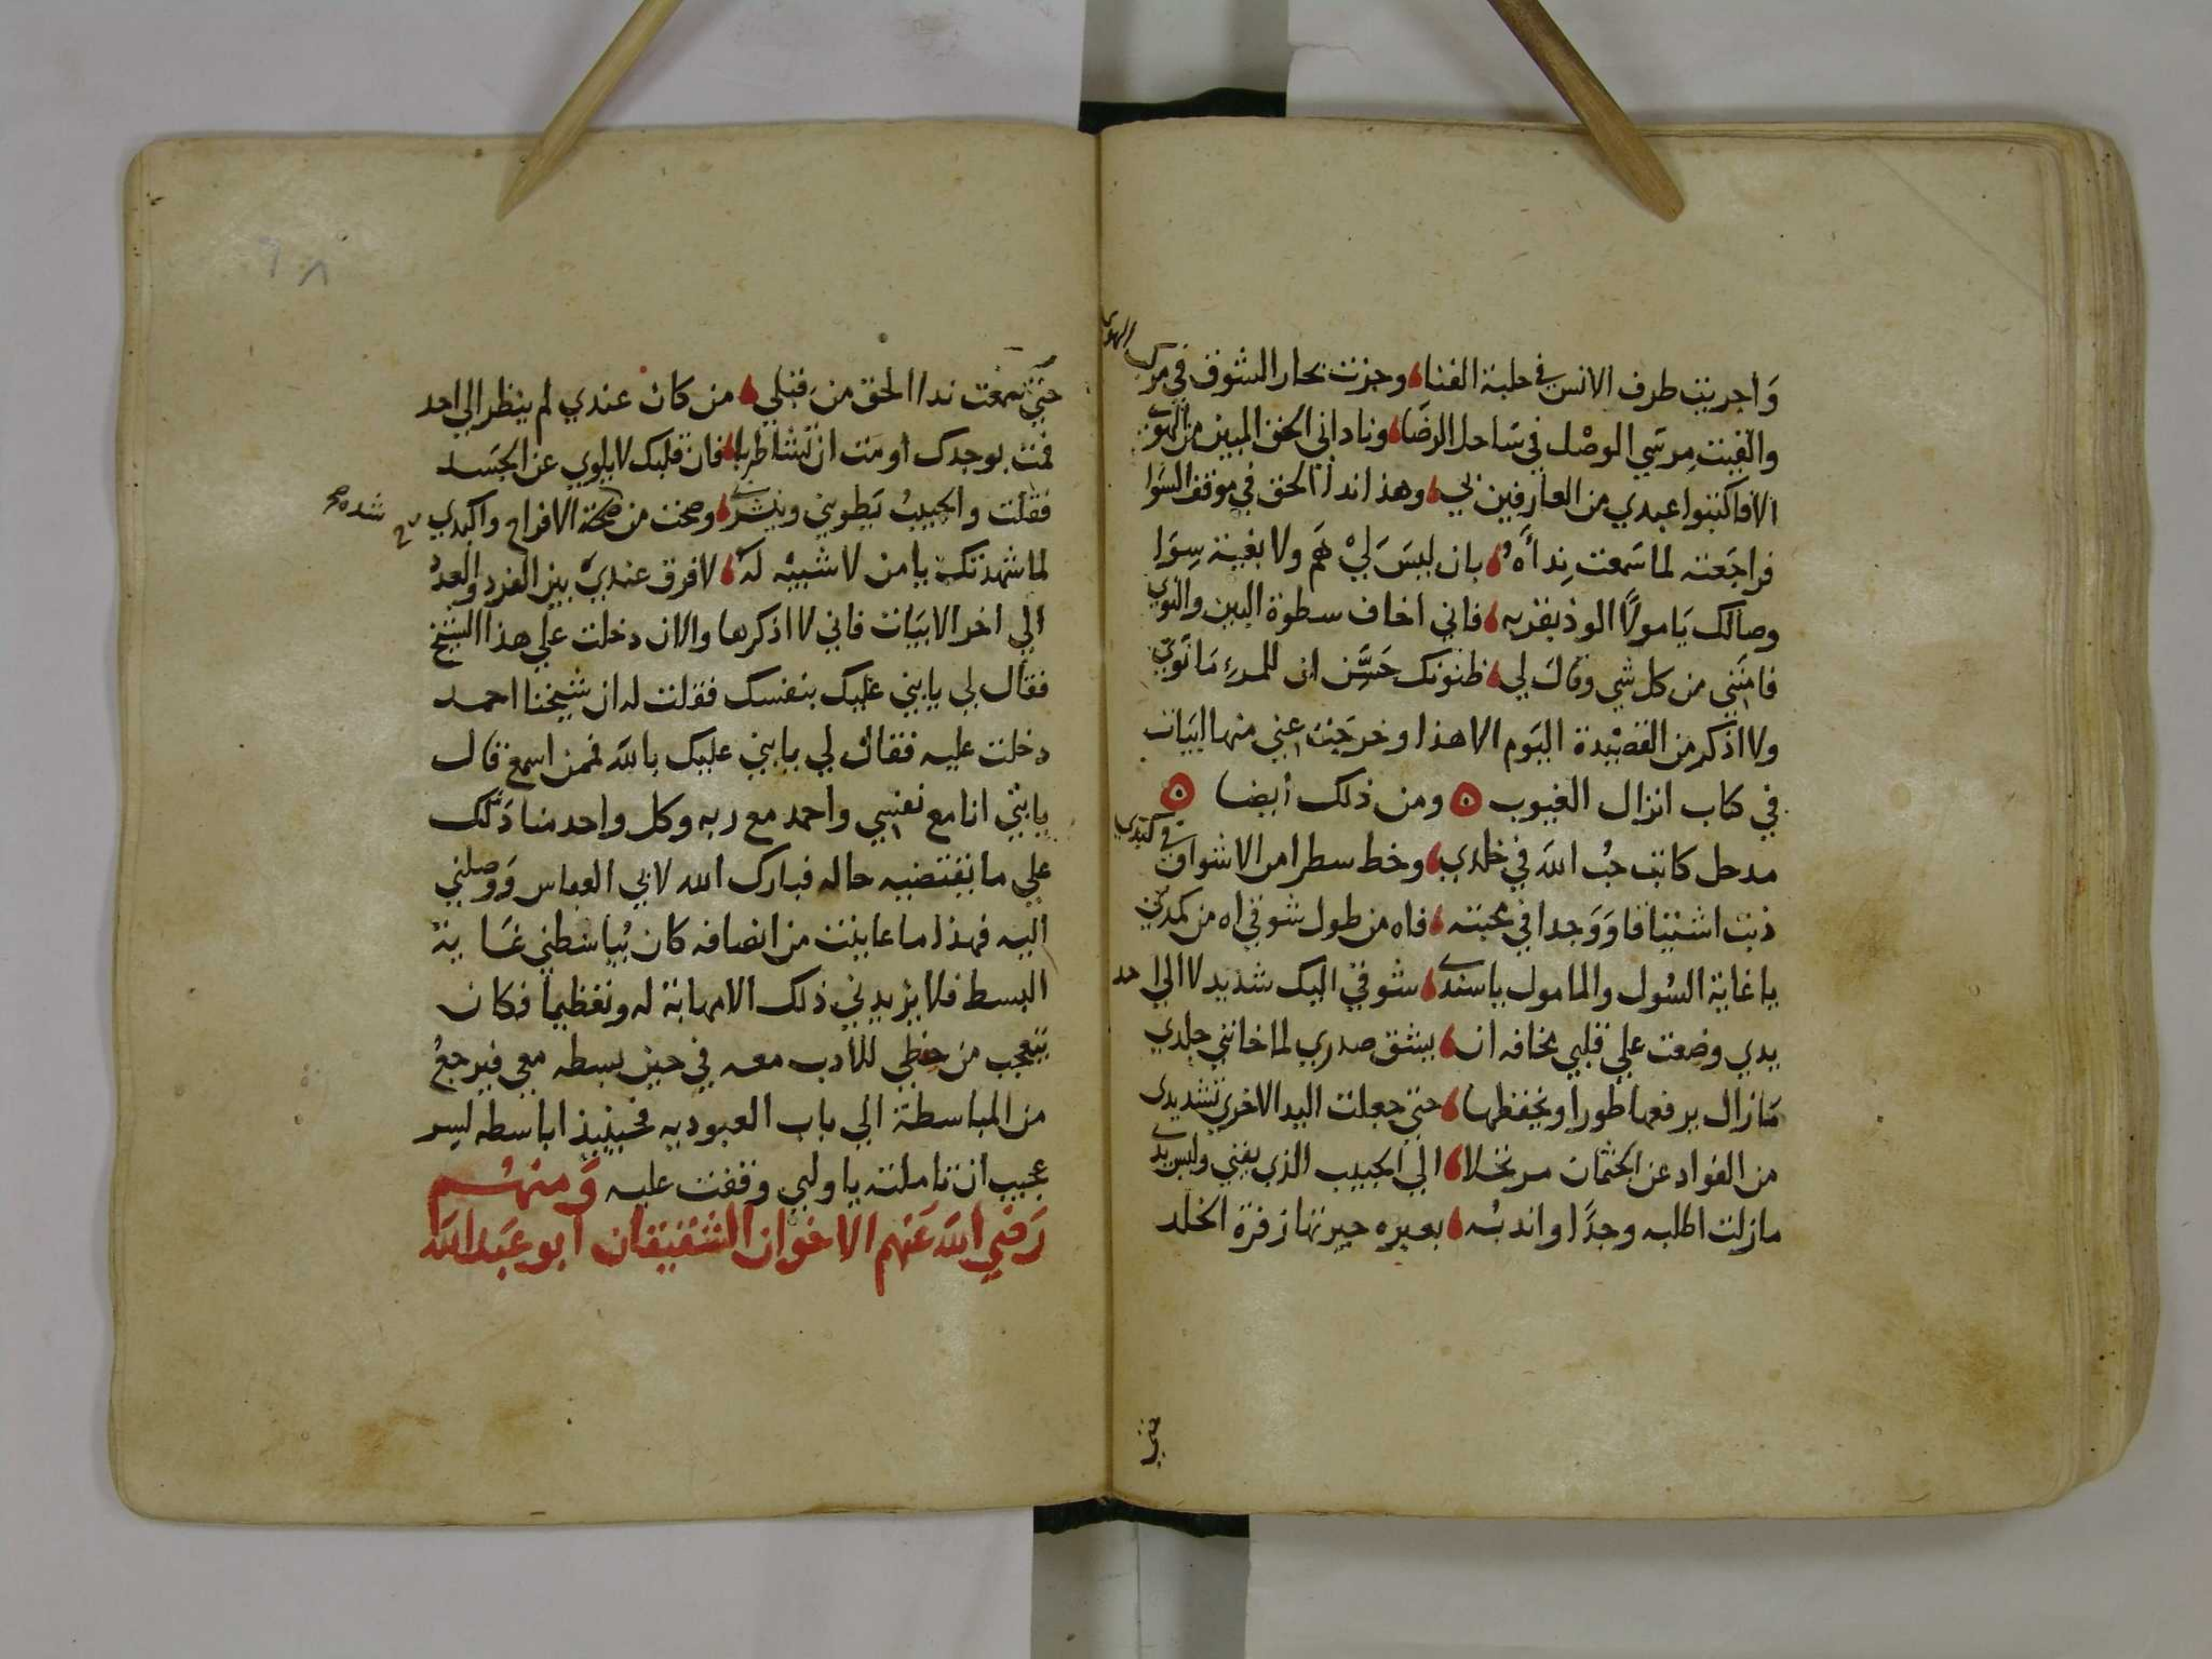 وَاجريت طرف الانس في حلبة الفنا وجزت بحار الشوق في مركب الهوي
والقيت مرسي الوصل في ساحل الرضا وناداني الحق المبين من الهوي
الافاكتبوا عبدي من العارفين بي وهذا ندا الحق في موقف السوا
فراجعته لما سمعت نداه بان ليس لي هم ولا بغية سوا
وصالك يا مولا الوذ بقربه فاني اخاف سطوة البين والنوي
فامنني من كل شي وقال لي ظنونك حسن ان للمرء ما نوي
ولا اذكر من القصيدة اليوم الا هذا وخرجت عني منها ابيات
في كتاب انزال الغيوب ومن ذلك أيضا
مدحل كاتب حب الله في خلدي وخط سطرا من الاشواق في كبدي
ذبت اشتياقا ووجدا في محبته فاه من طول شوقي اه من كمدي
يا غاية السول والمامول يا سندي شوقي اليك شديد لا الي احد
يدي وضعت علي قلبي مخافه ان ينشق صدري لما خانني جلدي
مازال يرفعها طورا ويخفظها حتي جعلت اليد الاخري تشديدي
من الفواد عن الجثمان مرتحلا الي الحبيب الذي يفني وليس
مازلت اطلبه وجدا واندبه بعبره حيرتها زفرة الخلد
حتي
٦٨
حتي سمعت ندا الحق من قبلي من كان عندي لم ينظر الي احد
فمت بوجدك أو مت ان تشا طربا فان قلبك لا يلوي عن الجسد
فقلت والحبيب يطويني وينشرني وصحت من صحة الافراح واكبدي
لما شهدتك يا من لا شبيه له لا فرق عندي بين الفرد والعدد
الي اخر الابيات فاني لا اذكرها والان دخلت علي هذا الشيخ
فقال لي يا بني عليك بنفسك فقلت له ان شيخنا احمد
دخلت عليه فقال لي يا بني عليك بالله فمن اسمع قال
يا بني انا مع نفسي واحمد مع ربه وكل واحد منا دلك
علي ما يقتضيه حاله فبارك الله لابي العباس ووصلني
اليه فهذا ما عاينت من انصافه كان يباسطني غاية
البسط فلا يزيدني ذلك الا مهابة له وتعظيما فكان
يتعجب من حفظي للأدب معه في حين بسطه معي فيرجع
من المباسطة الي باب العبوديه فحينيذ اباسطه لسر
عجيب ان تاملته يا ولي وقفت عليه وَمنهم
رَضي الله عَنهم الاخوان الشقيقان ابو عَبد الله